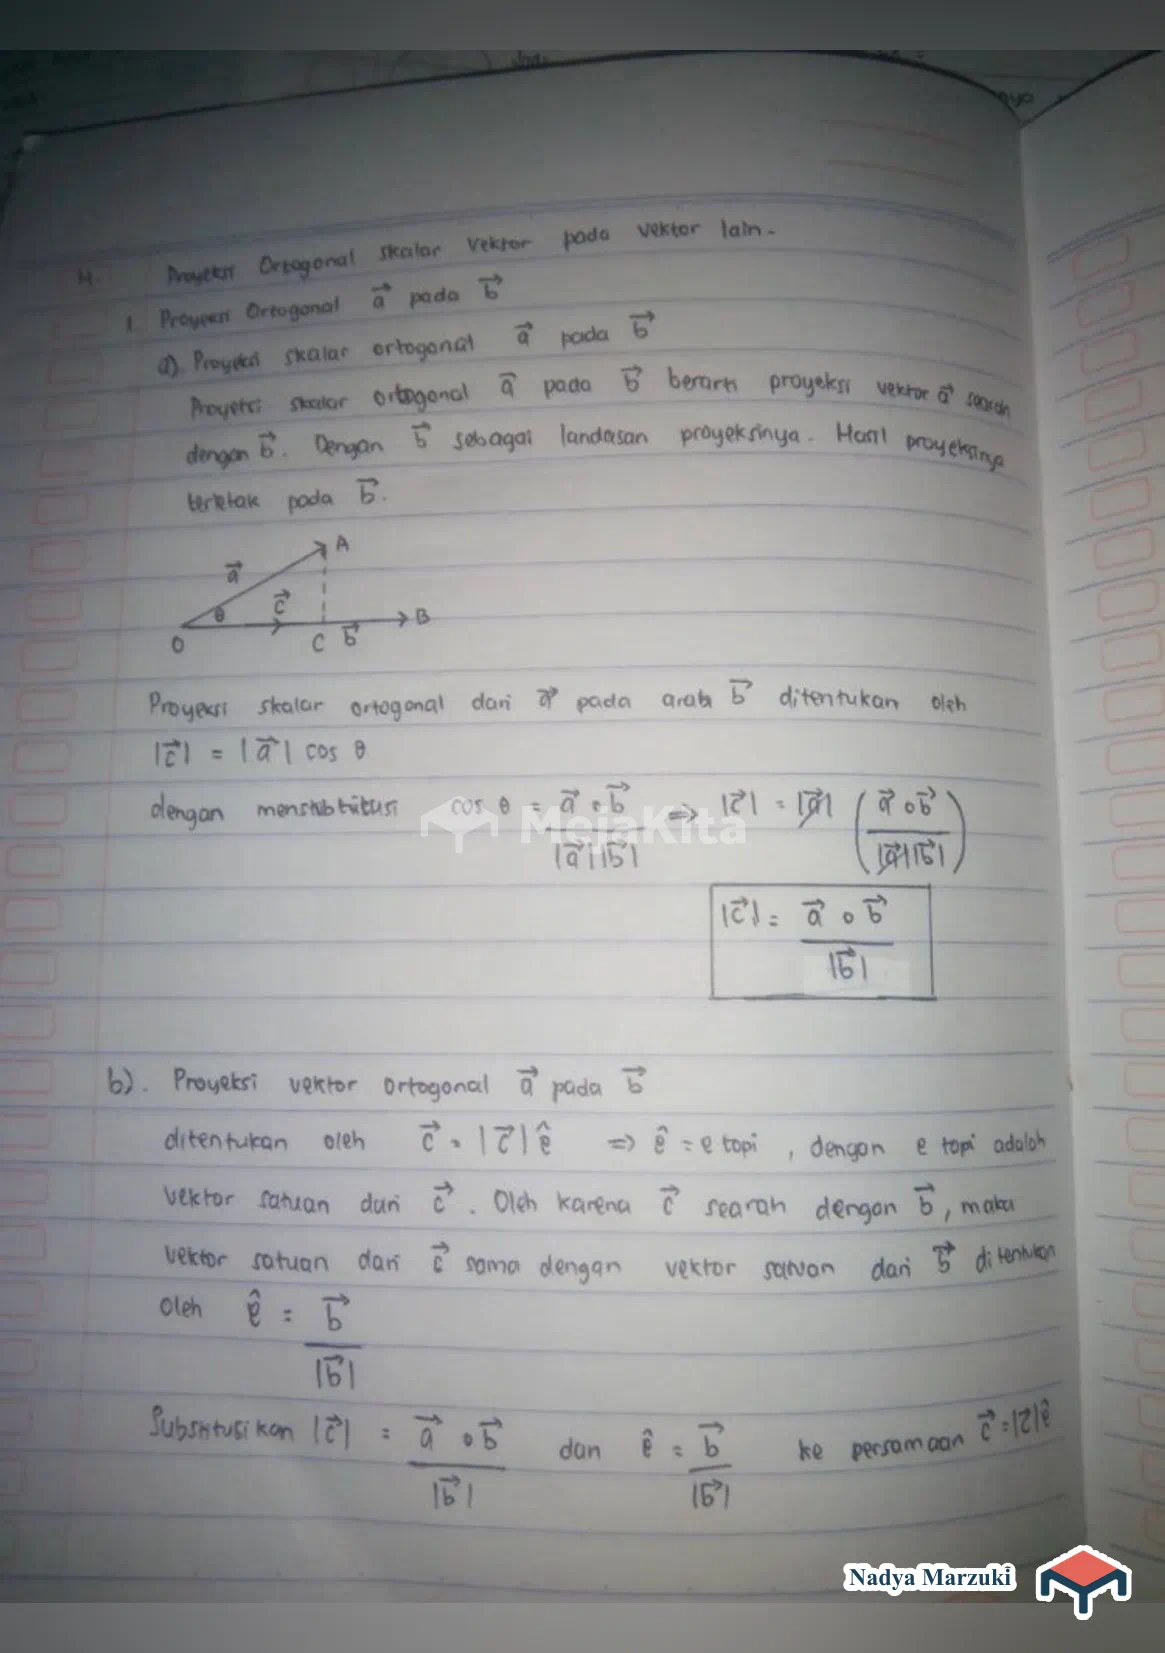 H. Proyeksi Ortogonal skalar vektor pada vektor lain.
1. Proyeksi Ortogonal a⃗ pada b⃗
a). Proyeksi skalar ortogonal a⃗ pada b⃗
Proyeksi skalar ortogonal a⃗ pada b⃗ berarti proyeksi vektor a⃗ searah
dengan b⃗. Dengan b⃗ sebagai landasan proyeksinya. Hasil proyeksinya
terletak pada b⃗.
A
a⃗
θ c⃗
B
O C b⃗
Proyeksi skalar ortogonal dari a⃗ pada arah b⃗ ditentukan oleh
|c⃗| = |a⃗| cos θ
dengan menstubtitusi cos θ = a⃗ ∘ b⃗ / |a⃗||b⃗| => |c⃗| = |a⃗| (a⃗ ∘ b⃗ / |a⃗||b⃗|)
|c⃗| = a⃗ ∘ b⃗ / |b⃗|
MejaKita
b). Proyeksi vektor ortogonal a⃗ pada b⃗
ditentukan oleh c⃗ = |c⃗| ê => ê = e topi, dengan e topi adalah
vektor satuan dari c⃗. Oleh karena c⃗ searah dengan b⃗, maka
vektor satuan dari c⃗ sama dengan vektor satuan dari b⃗ ditentukan
oleh ê = b⃗ / |b⃗|
Substitusikan |c⃗| = a⃗ ∘ b⃗ / |b⃗| dan ê = b⃗ / |b⃗| ke persamaan c⃗ = |c⃗| ê
Nadya Marzuki